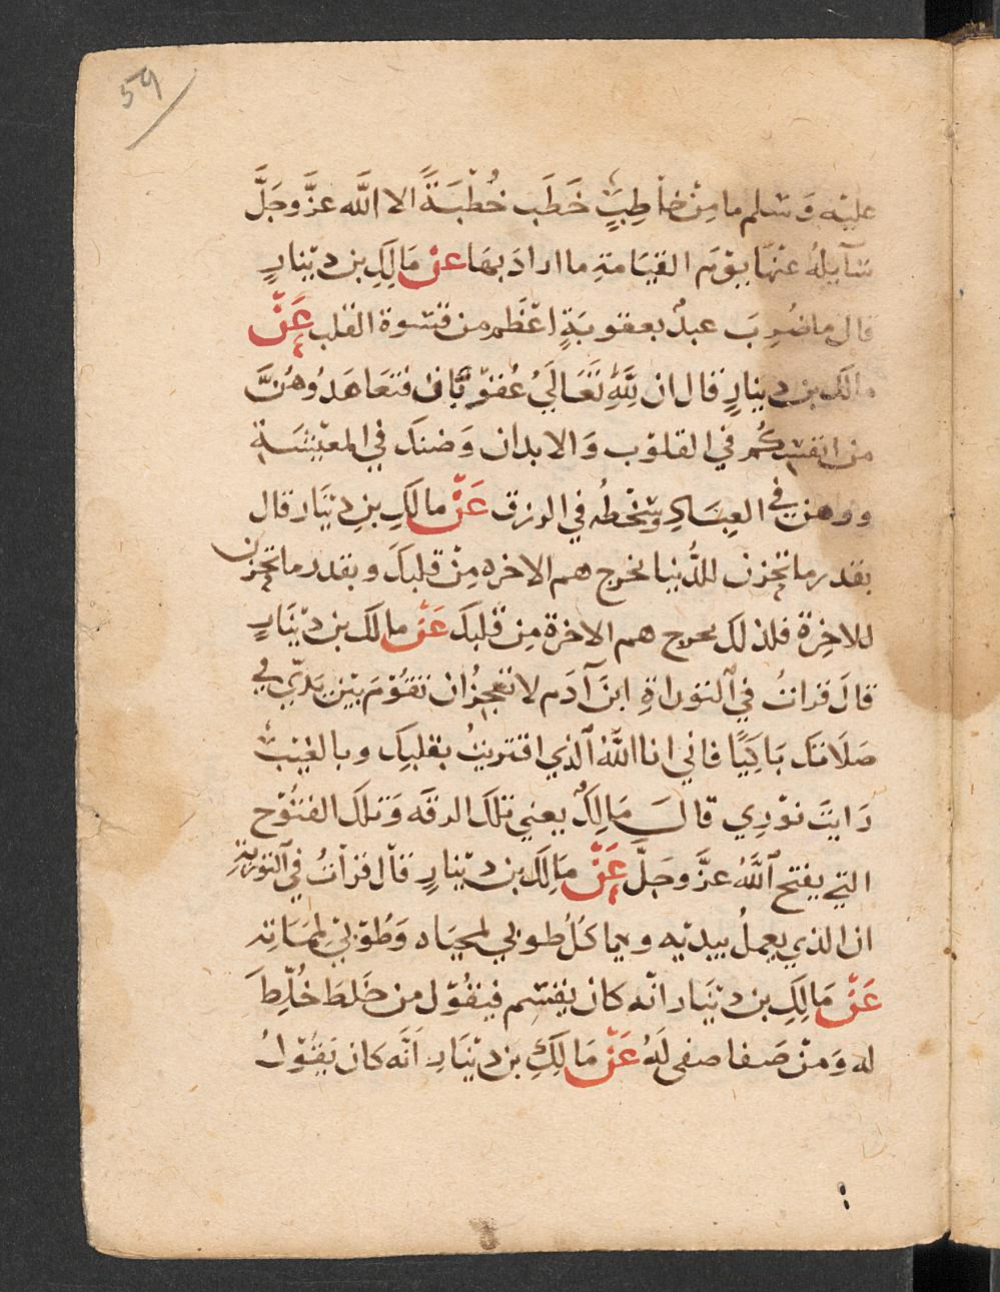 59
عليه وَسلم ما مِنْ خاطِبٍ خَطَب خُطْبَةً الا الله عزَّ وجَلَّ
سَآيلهُ عنهَا يوْمَ القيَامةِ ما ارادَ بهَا عنْ مَالِكِ بن دينارٍ
قال ما ضُرِبَ عبدٌ بعقوبَةٍ اعْظَم من قسْوة القلب عَنْ
مالك بن دينارٍ قال ان لِلّهِ تَعَالَيُ عُقوْبَاتٍ فتعَاهَدُوهُنَّ
من انفسِكُم في القلوْب وَالابدان وَضنك في المعيْشَةِ
ووهن في العِبَادِ وسَخْطُه في الرزق عَنْ مالكِ بنِ ديْنَار قال
بقدر ما تحزن للدُّنيا يخرج هم الاخره مِنْ قلبكَ وبقدر ما تحزن
للاخِرة فلذلك يخرج هم الاخرة مِن قلبك عَنْ مالك بن ديْنَارٍ
قالَ قراتُ في التوراةِ ابنَ آدَم لا تعْجزُ ان تقوْمَ بيْن يَديّ في
صَلَاتك بَاكيًا فاني انا اللهُ الذي اقتربْتُ بقلبِك وبالغيْب
رَايتَ نوْرِي قالَ مَالِكٌ يعني تلكَ الرقَه وَتلكَ الفتُوْح
التي يفتح اللهُ عزَّ وجَلّ عَنْ مَالِكَ بن ديْنارٍ قالَ قراتُ في التوْريةِ
ان الذي يعملُ بيديْه وياكُلُ طوبي لمحيَاه وَطُوْبيْ لمَمَاتِه
عَنْ مَالِكِ بن ديْنَار انّه كان يقسِم فيقُوْل من خَلطَ خُلّطَ
له وَمَنْ صَفا صفى لَهُ عَنْ مَالِكِ بن ديْنَارِ اَنَّه كان يَقُوْلُ